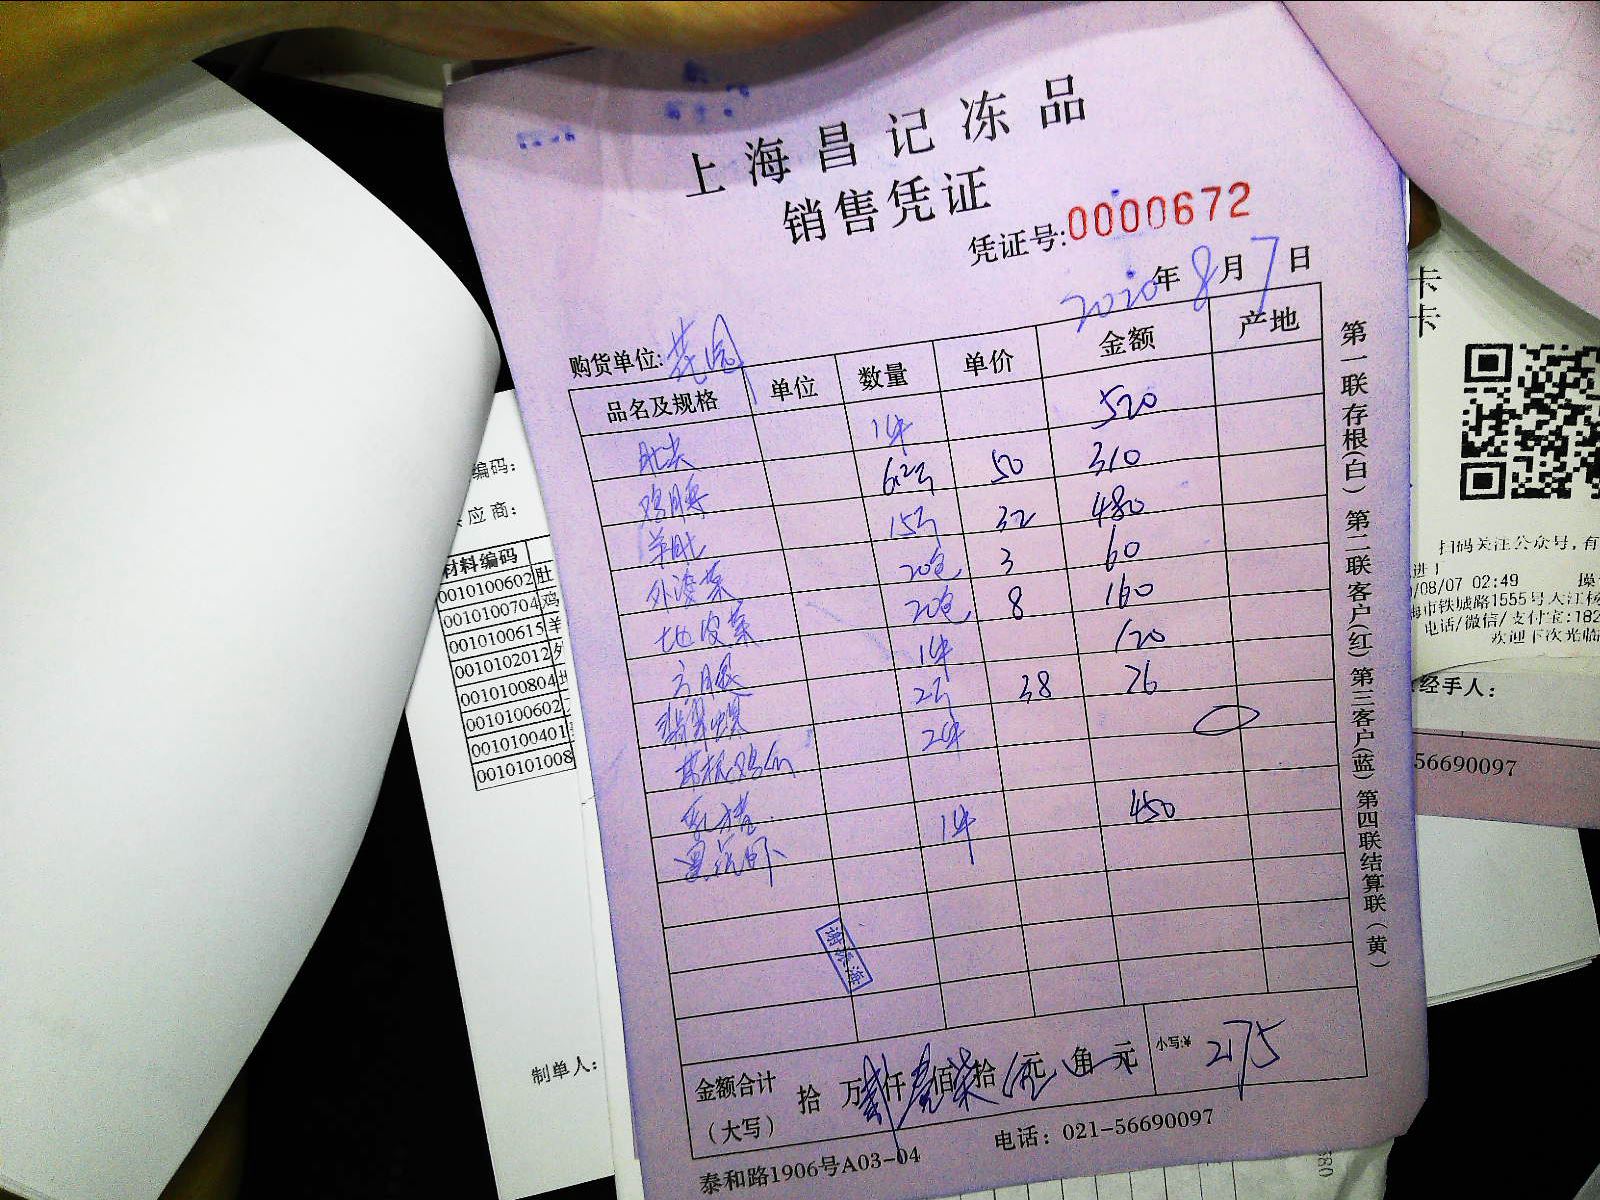 上海昌记冻品
销售凭证
凭证号:0000672
2020年8月7日
购货单位:花园
品名及规格 单位 数量 单价 金额 产地
肚尖 1件 520
鸡脯 6.2斤 50 310
羊肚 15斤 32 480
外婆菜 20包 3 60
地皮菜 20包 8 160
方腿 1件 120
2斤 38 76
2件
乳猪
1件 450
谢
金额合计 拾 万贰仟壹佰柒拾伍元 角 元 小写:¥ 2175
(大写)
泰和路1906号A03-04 电话：021-56690097
第一联存根(白) 第二联客户(红) 第三客户(蓝) 第四联结算联(黄)
编码：
应商：
材料编码
0010100602 肚
0010100704 鸡
0010100615 羊
0010102012 外
0010100804
0010100602
0010100401
0010101008
制单人：
卡
卡
扫码关注公众号,有
进!
/08/07 02:49 操
海市铁城路1555号大江杨
电话/微信/支付宝:182
欢迎下次光临
经手人：
56690097